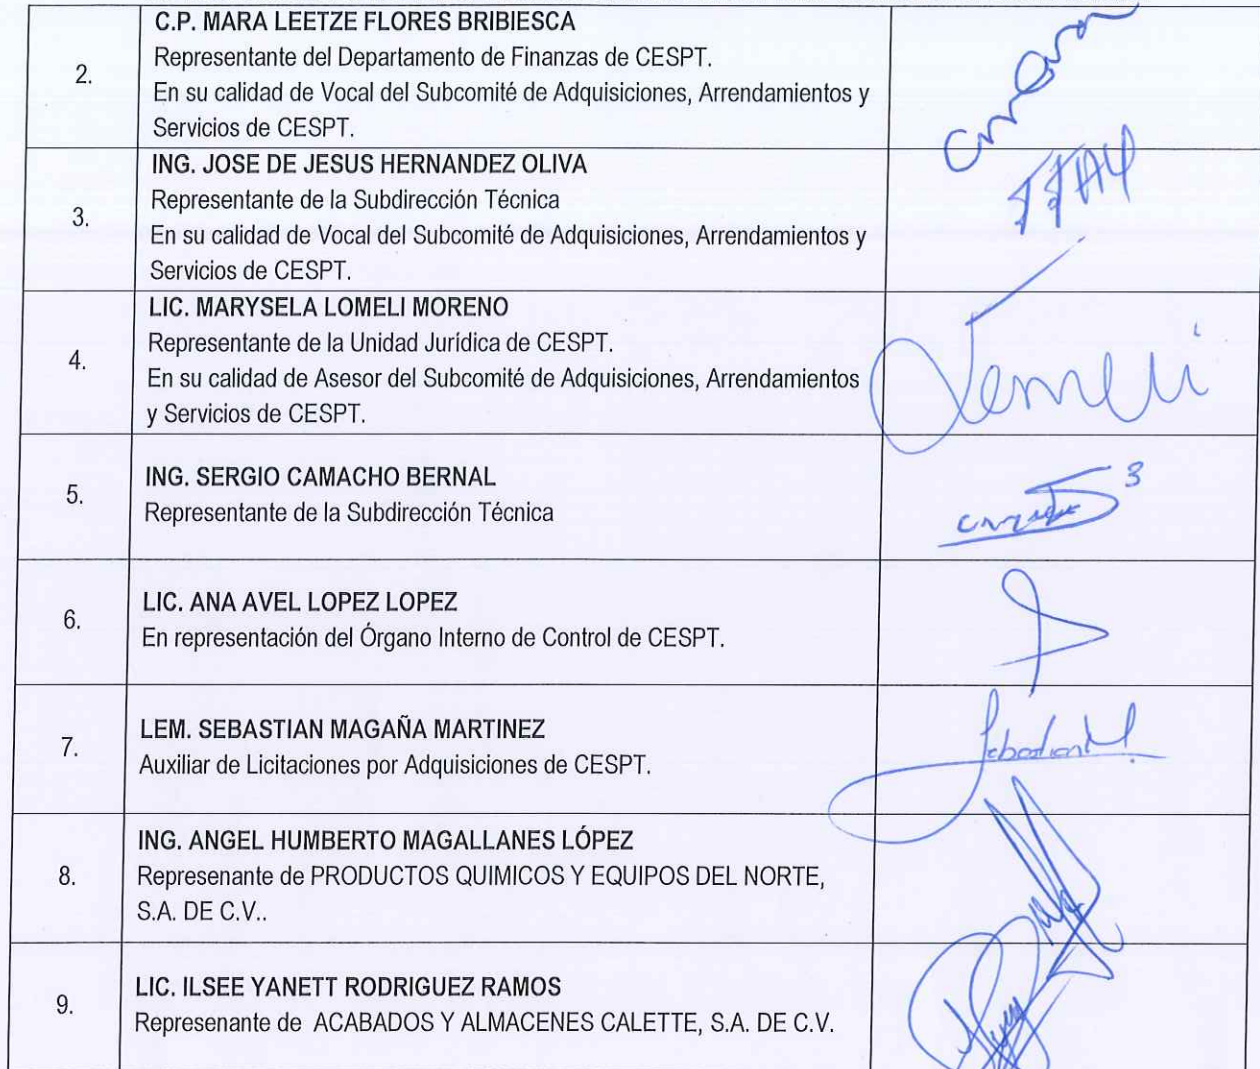 2.
C.P. MARA LEETZE FLORES BRIBIESCA
Representante del Departamento de Finanzas de CESPT.
En su calidad de Vocal del Subcomité de Adquisiciones, Arrendamientos y
Servicios de CESPT.
3.
ING. JOSE DE JESUS HERNANDEZ OLIVA
Representante de la Subdirección Técnica
En su calidad de Vocal del Subcomité de Adquisiciones, Arrendamientos y
Servicios de CESPT.
4.
LIC. MARYSELA LOMELI MORENO
Representante de la Unidad Jurídica de CESPT.
En su calidad de Asesor del Subcomité de Adquisiciones, Arrendamientos
y Servicios de CESPT.
5.
ING. SERGIO CAMACHO BERNAL
Representante de la Subdirección Técnica
6.
LIC. ANA AVEL LOPEZ LOPEZ
En representación del Órgano Interno de Control de CESPT.
7.
LEM. SEBASTIAN MAGAÑA MARTINEZ
Auxiliar de Licitaciones por Adquisiciones de CESPT.
8.
ING. ANGEL HUMBERTO MAGALLANES LÓPEZ
Represenante de PRODUCTOS QUIMICOS Y EQUIPOS DEL NORTE,
S.A. DE C.V..
9.
LIC. ILSEE YANETT RODRIGUEZ RAMOS
Represenante de ACABADOS Y ALMACENES CALETTE, S.A. DE C.V.